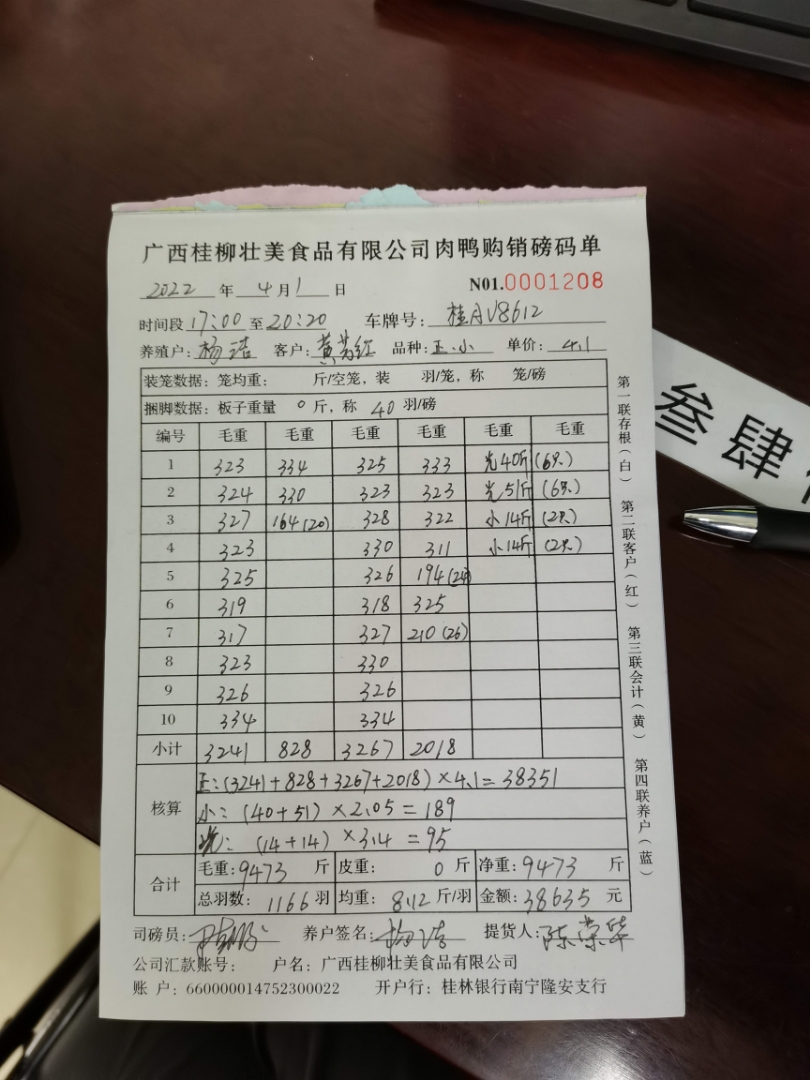 广西桂柳壮美食品有限公司肉鸭购销磅码单
2022 年 4 月 1 日 N01.0001208
时间段 17:00 至 20:20 车牌号: 桂AV8612
养殖户: 杨洁 客户: 黄芳红 品种: 正.小 单价: 4.1
装笼数据: 笼均重: 斤/空笼, 装 羽/笼, 称 笼/磅
捆脚数据: 板子重量 0 斤, 称 40 羽/磅
编号 毛重 毛重 毛重 毛重 毛重 毛重
1 323 334 325 333 光40斤 (6只)
2 324 330 323 323 光51斤 (6只)
3 327 164(20) 328 322 小14斤 (2只)
4 323 330 311 小14斤 (2只)
5 325 326 194(24)
6 319 318 325
7 317 327 210(26)
8 323 330
9 326 326
10 334 334
小计 3241 828 3267 2018
核算
正:(3241+828+3267+2018)×4.1=38351
小: (40+51)×2.05=189
(14+14)×3.4=95
合计
毛重:9473 斤 皮重: 0 斤 净重:9473 斤
总羽数: 1166 羽 均重: 8.12 斤/羽 金额:38635 元
司磅员: 养户签名: 杨洁 提货人: 陈荣华
公司汇款账号: 户名: 广西桂柳壮美食品有限公司
账 户: 660000014752300022 开户行: 桂林银行南宁隆安支行
第一联存根(白) 第二联客户(红) 第三联会计(黄) 第四联养户(蓝)
叁肆